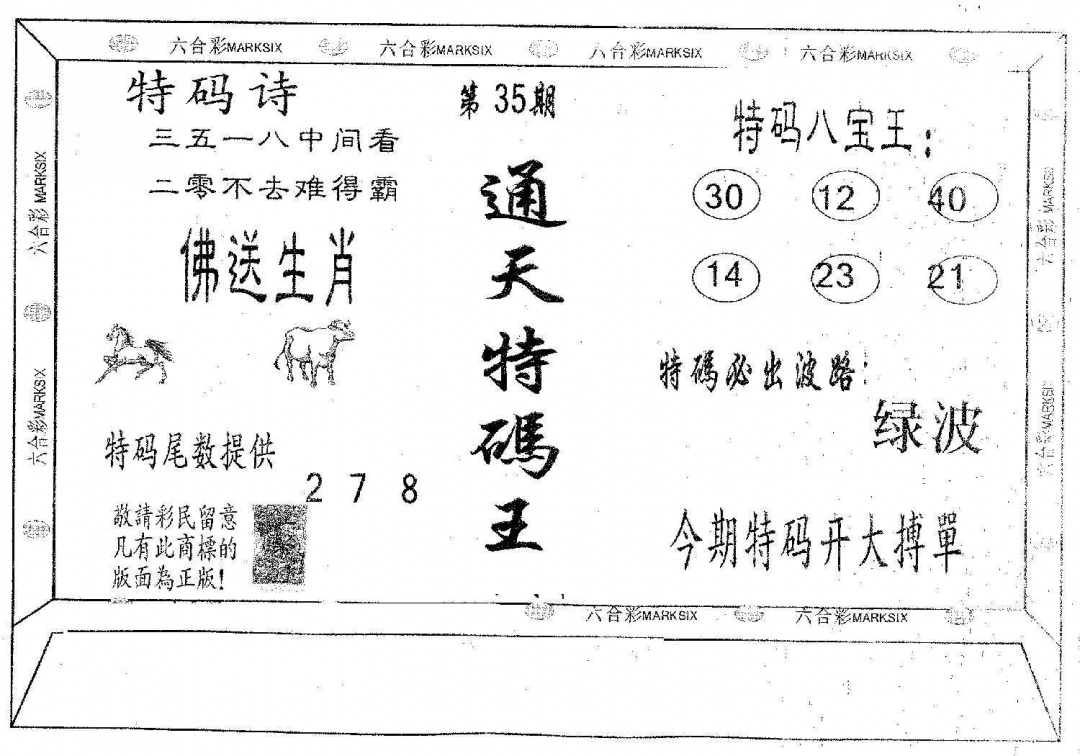 六合彩MARKSIX 六合彩MARKSIX 六合彩MARKSIX 六合彩MARKSIX
六合彩MARKSIX
六合彩MARKSIX
特码诗
三五一八中间看
二零不去难得霸
佛送生肖
特码尾数提供
2 7 8
敬請彩民留意
凡有此商標的
版面為正版!
第35期
通天特碼王
特码八宝王:
30 12 40
14 23 21
特碼必出波路:
绿波
今期特码开大搏單
六合彩MARKSIX
六合彩MARKSIX
六合彩MARKSIX 六合彩MARKSIX